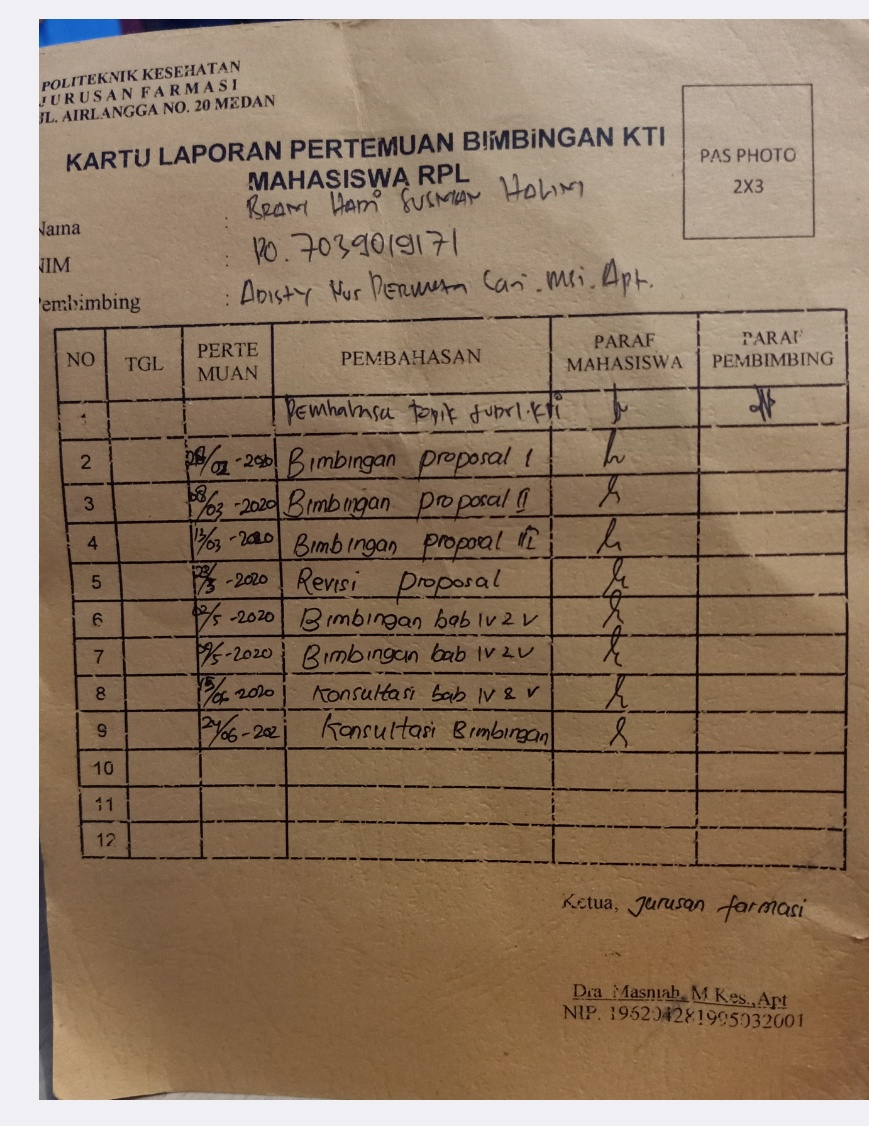 POLITEKNIK KESEHATAN
JURUSAN FARMASI
JL. AIRLANGGA NO. 20 MEDAN
KARTU LAPORAN PERTEMUAN BIMBINGAN KTI
MAHASISWA RPL
PAS PHOTO
2X3
Nama : Hadi
NIM : PO. 7039019171
Pembimbing : Adisty Nur Sari. Msi. Apt.
NO TGL PERTE MUAN PEMBAHASAN PARAF MAHASISWA PARAF PEMBIMBING
1 topik KTI
2 -2020 Bimbingan proposal I
3 08/03 -2020 Bimbingan proposal II
4 13/03 -2020 Bimbingan proposal III
5 -2020 Revisi proposal
6 02/5 -2020 Bimbingan bab IV 2 V
7 09/5-2020 Bimbingan bab IV 2 V
8 15/06 2020 Konsultasi bab IV & V
9 24/06-202 Konsultasi Bimbingan
10
11
12
Ketua, Jurusan farmasi
Dra Masniah, M Kes., Apt
NIP. 196204281995032001